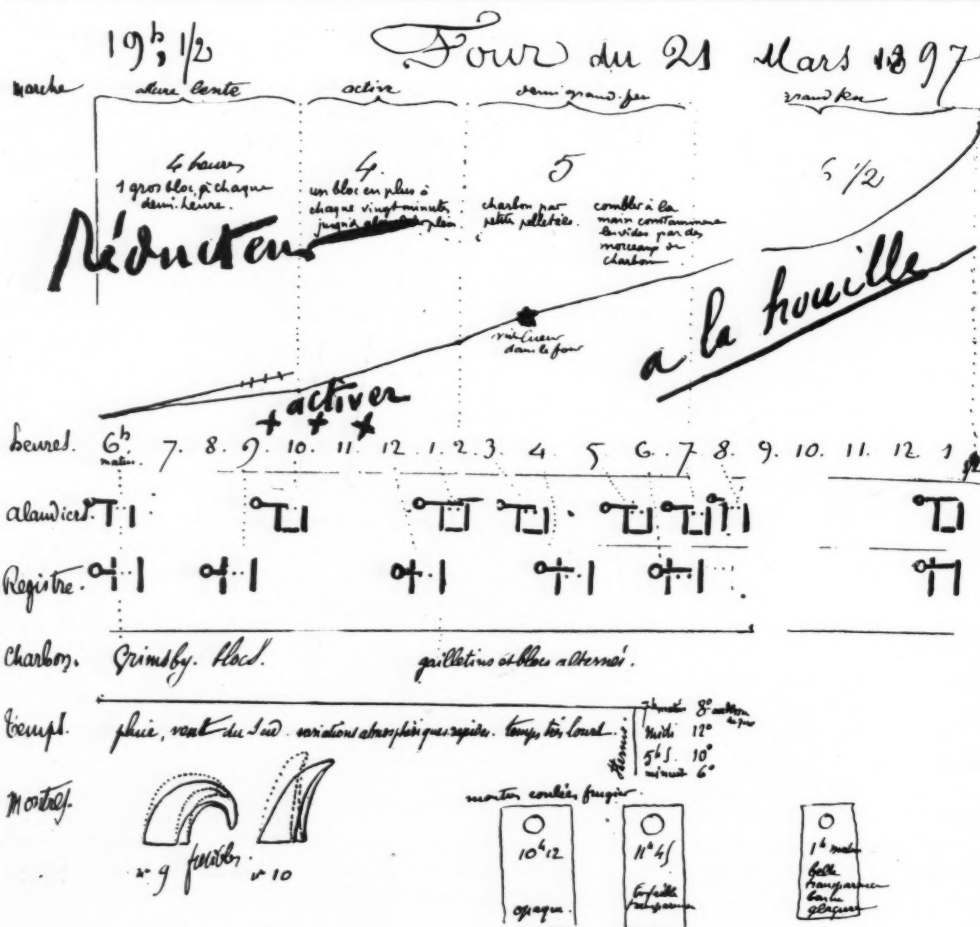 19h, 1/2 Four du 21 Mars 1897
Marche allure lente active demi grand feu grand feu
4 heures
1 gros bloc, à chaque
demi-heure.
4.
un bloc en plus à
chaque vingt minutes
jusqu'à plein
5
charbon par
petites pelletées.
combler à la
main constamment
les vides par des
morceaux de
charbon
6 1/2
Réducteur
a la houille
dans le four
activer
heures. 6h 7. 8. 9. 10. 11. 12. 1. 2. 3. 4. 5. 6. 7. 8. 9. 10. 11. 12. 1 1/2
matin.
alandiers.
Registre.
Charbon. Grimsby. blocs. gailletins et blocs alternés.
Temps. pluie, vent du Sud. variations atmosphériques rapides. temps très lourd.
7h matin 8°
midi 12°
5h s. 10°
minuit 6°
Montres.
n° 9 fusibles n° 10
montres coulées
10h 12
opaque.
11h 45
1h matin
belle
transparence
bonne
glaçure